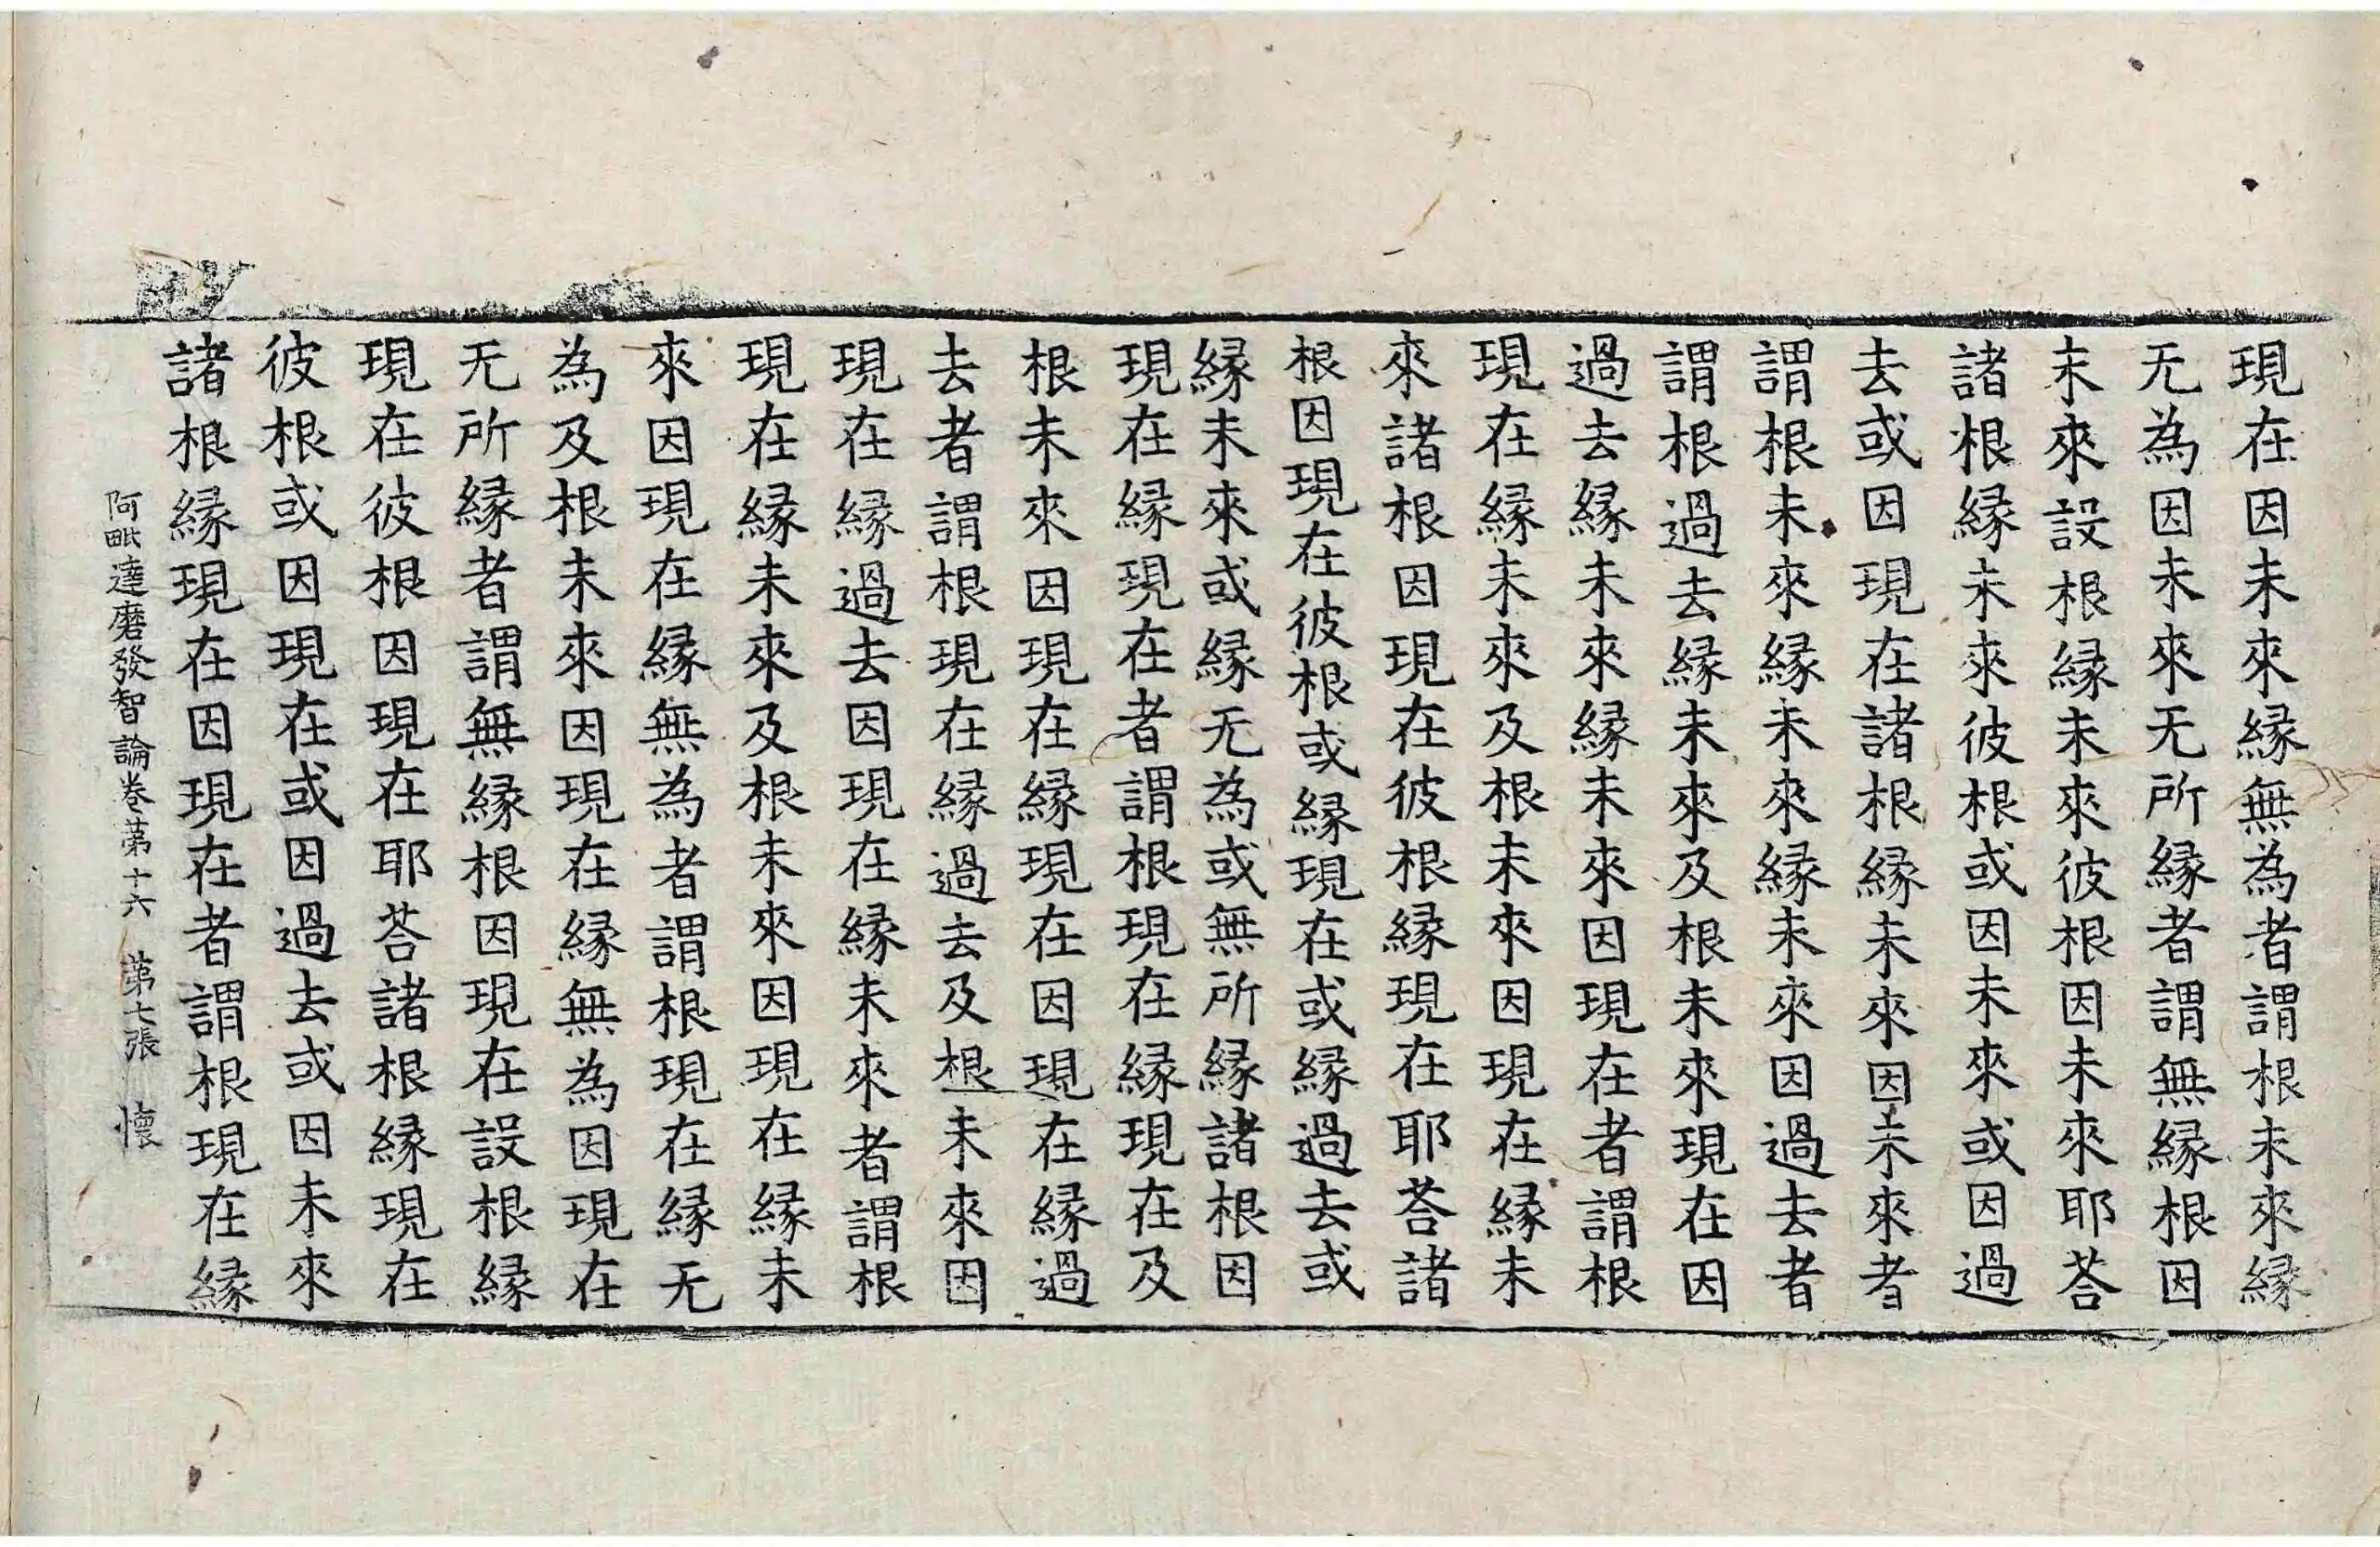 現在因未來緣無為者謂根未來緣
无為因未來无所緣者謂無緣根因
未來設根緣未來彼根因未來耶荅
諸根緣未來彼根或因未來或因過
去或因現在諸根緣未來因未來者
謂根未來緣未來緣未來因過去者
謂根過去緣未來及根未來現在因
過去緣未來緣未來因現在者謂根
現在緣未來及根未來因現在緣未
來諸根因現在彼根緣現在耶荅諸
根因現在彼根或緣現在或緣過去或
緣未來或緣无為或無所緣諸根因
現在緣現在者謂根現在緣現在及
根未來因現在緣現在因現在緣過
去者謂根現在緣過去及根未來因
現在緣過去因現在緣未來者謂根
現在緣未來及根未來因現在緣未
來因現在緣無為者謂根現在緣无
為及根未來因現在緣無為因現在
无所緣者謂無緣根因現在設根緣
現在彼根因現在耶荅諸根緣現在
彼根或因現在或因過去或因未來
諸根緣現在因現在者謂根現在緣
阿毗達磨發智論卷第十六 第七張 懷